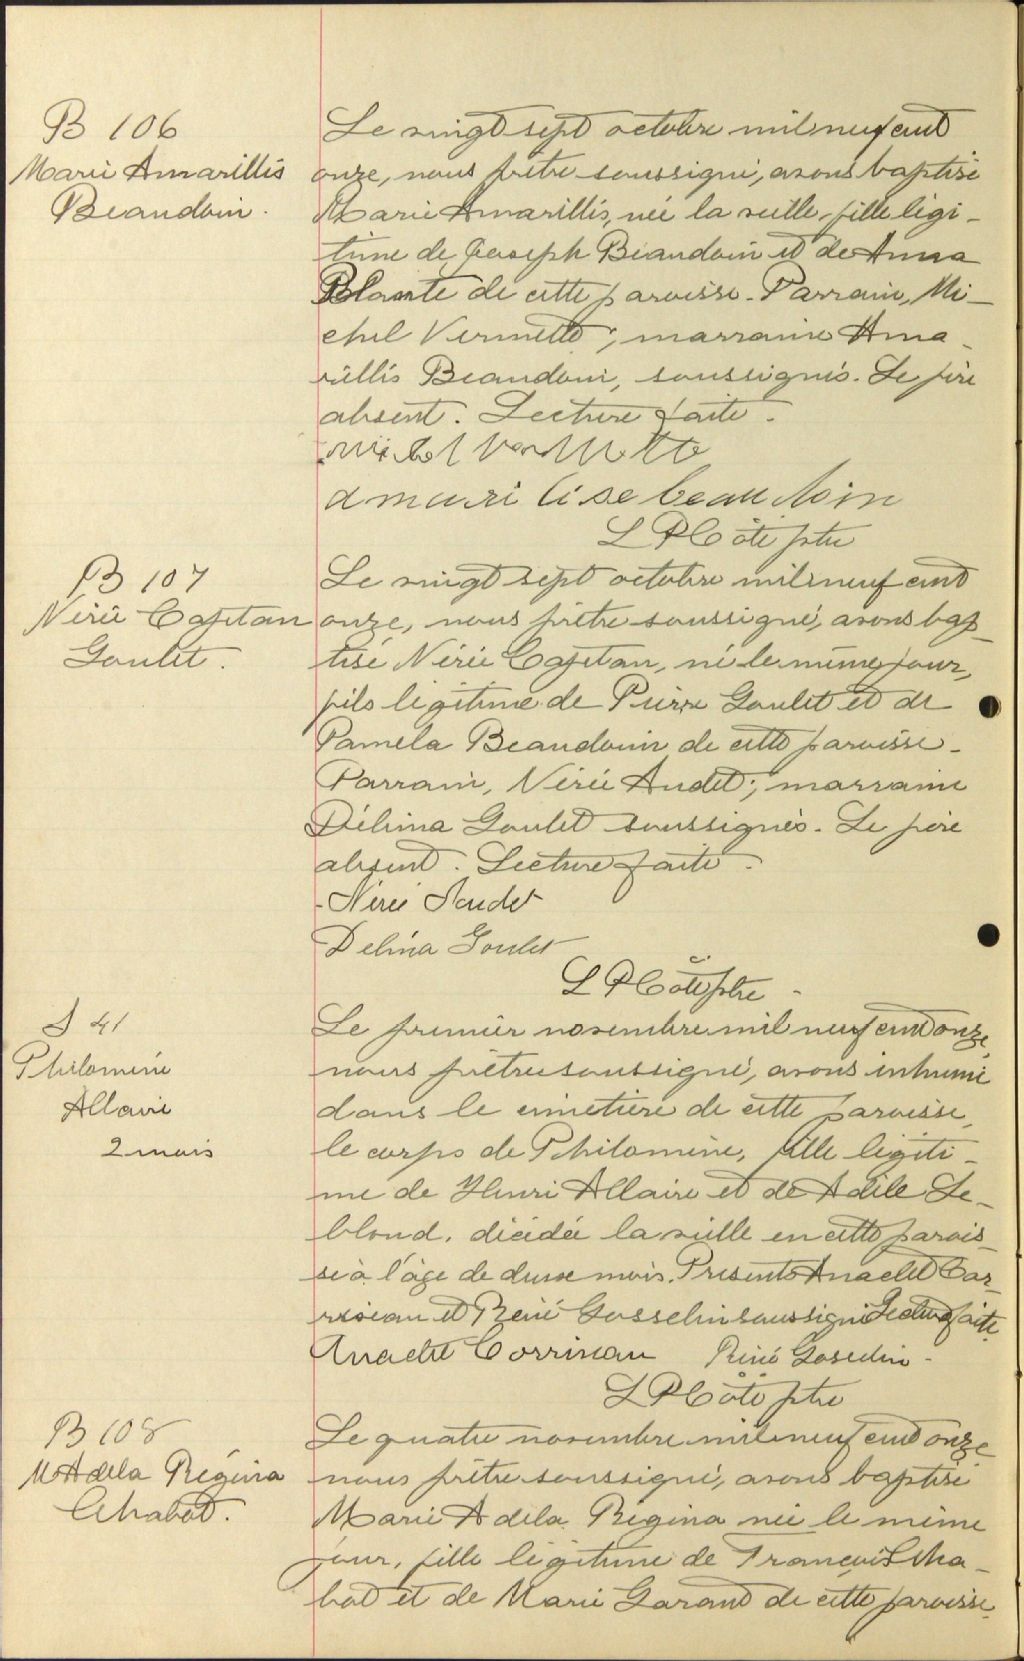 B 106
Marie Amarillis
Beaudoin.
Le vingt sept octobre mil neuf cent
onze, nous prêtre soussigné, avons baptisé
Marie Amarillis, née la veille, fille légi-
time de Joseph Beaudoin et de Anna
Plante de cette paroisse. Parrain, Mi-
chel Vermette; marraine Ama-
rillis Beaudoin, soussignés. Le père
absent. Lecture faite.
Michel Vermette
amari lise beaudoin
L P Côté ptre
B 107
Nérée Cajetan
Goulet.
Le vingt sept octobre mil neuf cent
onze, nous prêtre soussigné, avons bap-
tisé Nérée Cajetan, né le même jour,
fils légitime de Pierre Goulet et de
Pamela Beaudouin de cette paroisse.
Parrain, Nérée Audet; marraine
Délima Goulet soussignés. Le père
absent. Lecture faite.
Nérée Audet
Delina Goulet
L P Côté ptre
S 41
Philomène
Allaire
2 mois
Le premier novembre mil neuf cent onze,
nous prêtre soussigné, avons inhumé
dans le cimetière de cette paroisse,
le corps de Philomène, fille légiti-
me de Henri Allaire et de Adèle Le-
blond, décédée la veille en cette parois-
se à l'âge de deux mois. Présents Anaclet Cor-
riveau et René Gosselin soussignés Lecture faite
Anaclet Corriveau René Gosselin
L P Côté ptre
B 108
M Adela Régina
Chabot.
Le quatre novembre mil neuf cent onze
nous prêtre soussigné, avons baptisé
Marie Adela Régina née le même
jour, fille légitime de François Cha-
bot et de Marie Garant de cette paroisse.